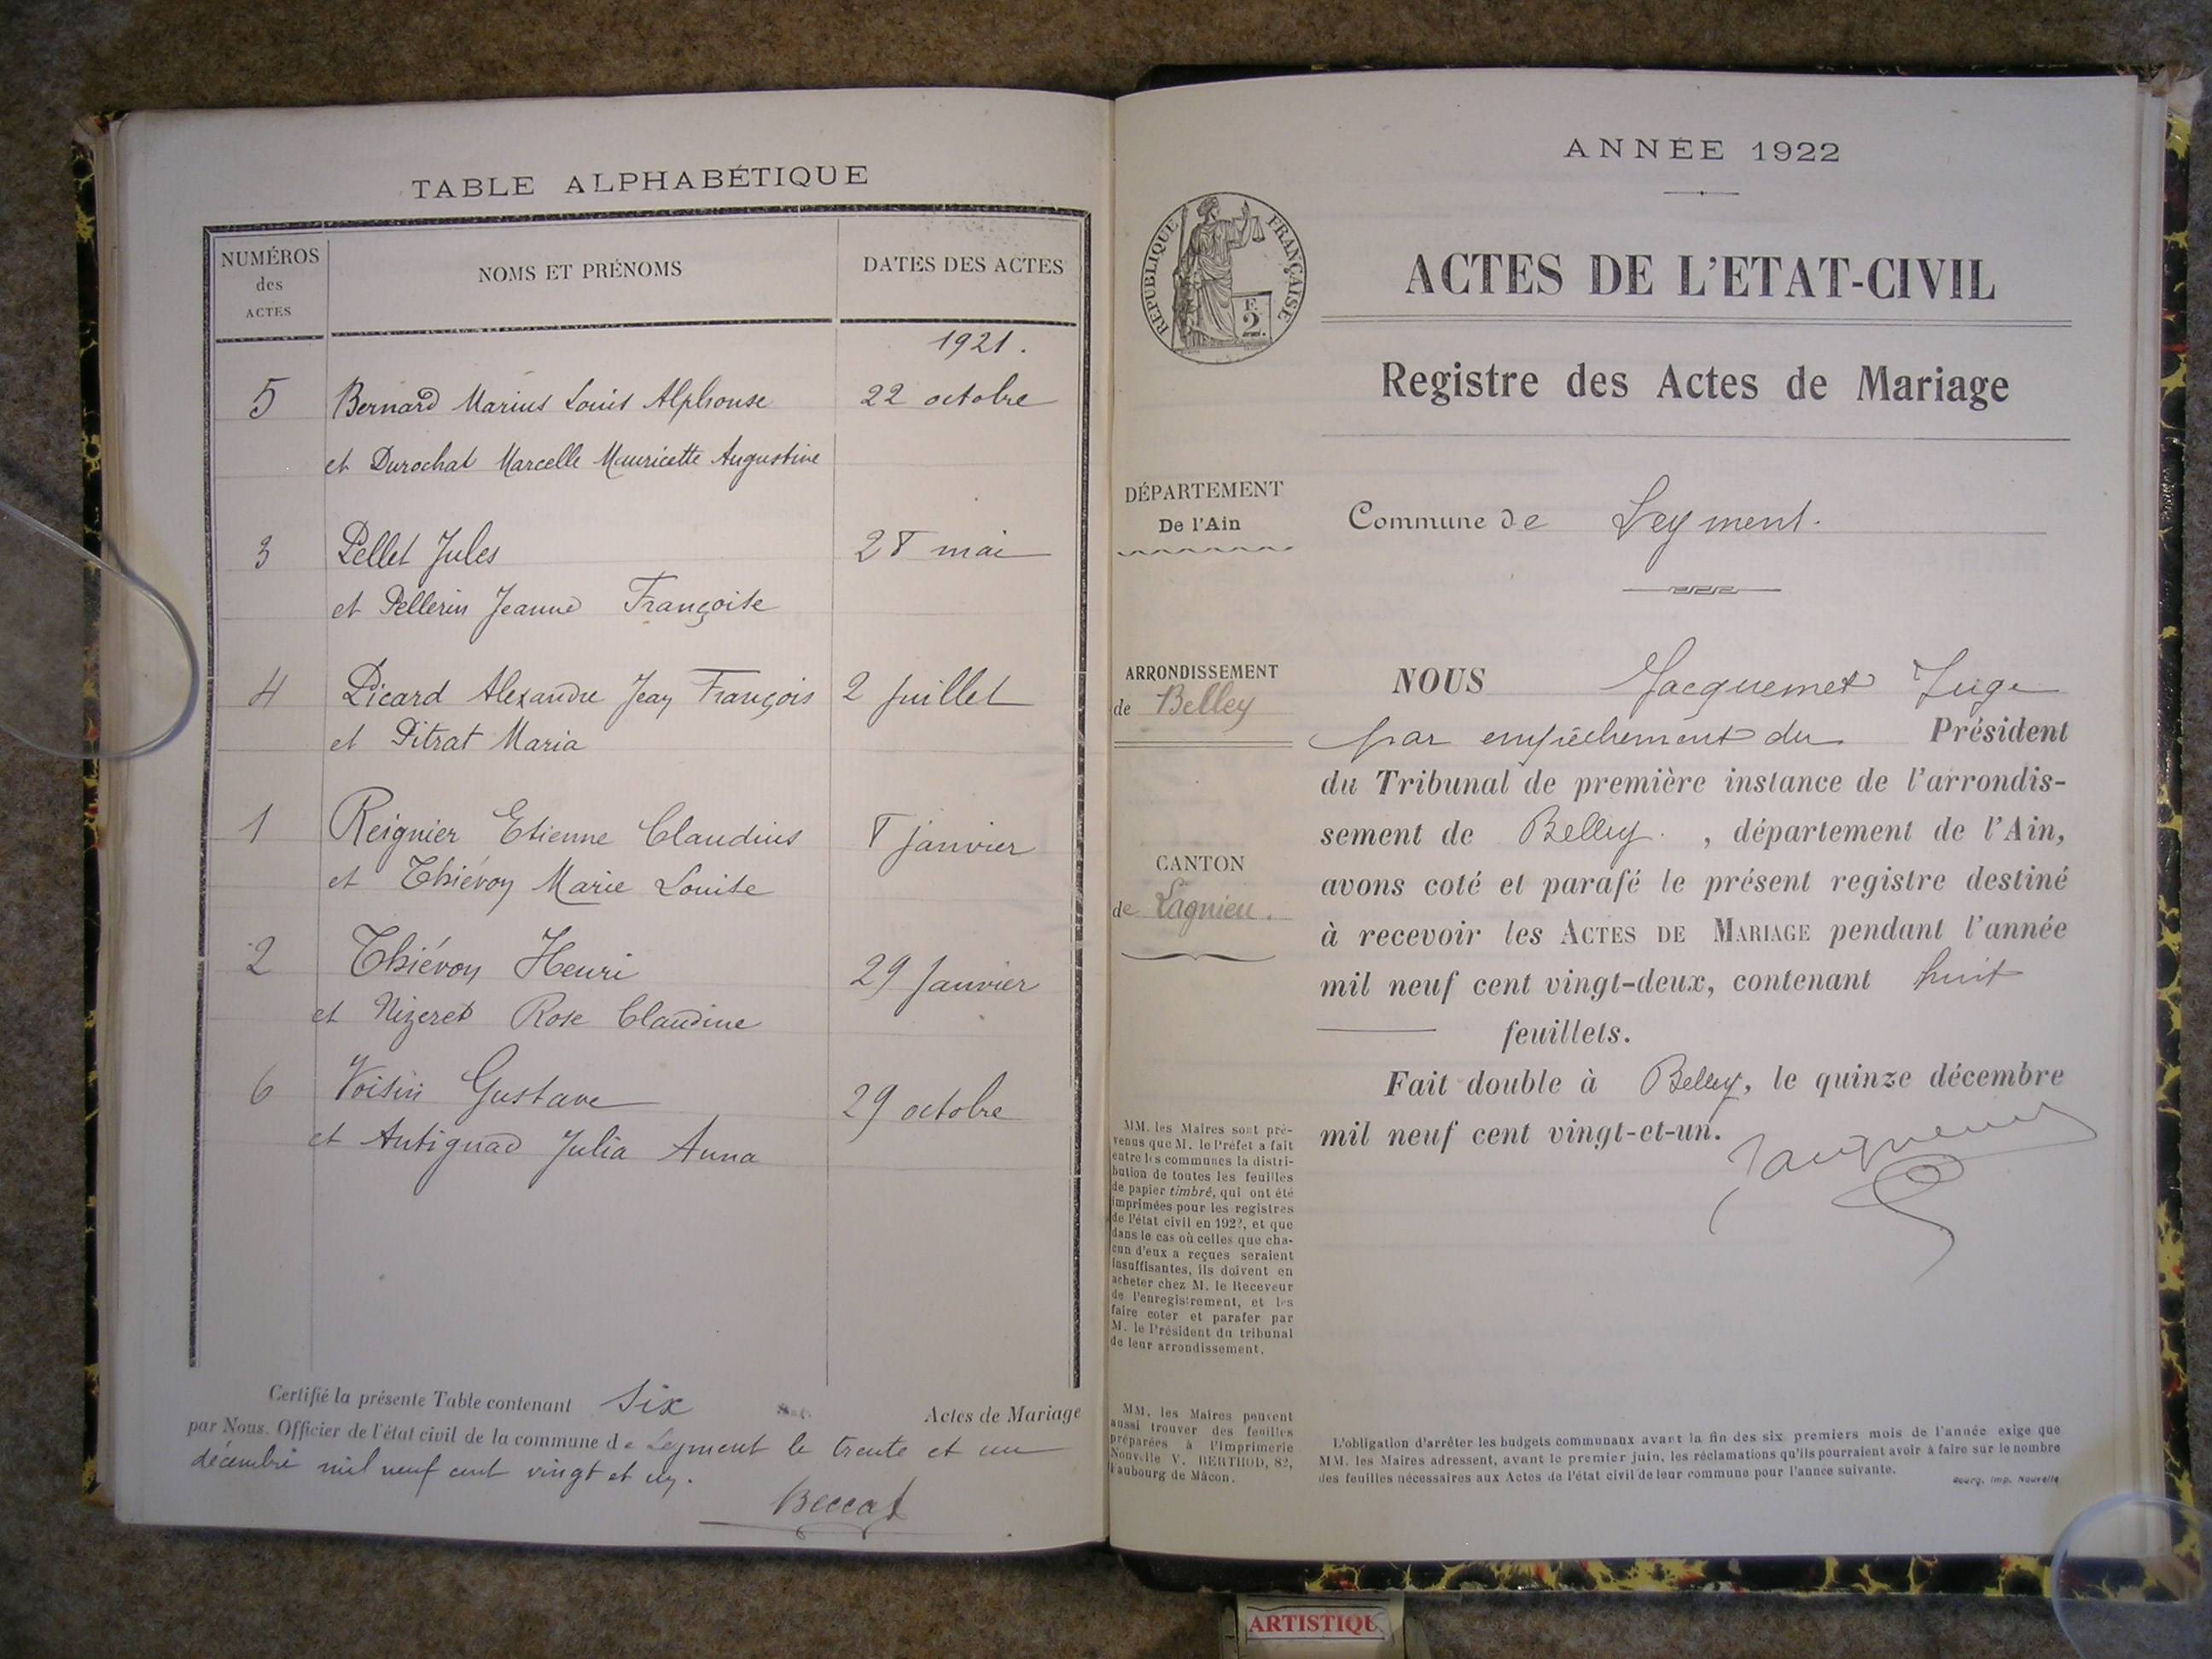 TABLE ALPHABÉTIQUE
NUMÉROS des ACTES
NOMS ET PRÉNOMS
DATES DES ACTES
1921.
5 Bernard Marius Louis Alphonse 22 octobre
et Durochat Marcelle Mauricette Augustine
3 Pellet Jules 28 mai
et Pellerin Jeanne Françoise
4 Picard Alexandre Jean François 2 Juillet
et Pitrat Maria
1 Reignier Etienne Claudius 8 janvier
et Thiévon Marie Louise
2 Thiévon Henri 29 Janvier
et Nizeret Rose Claudine
6 Voisin Gustave 29 octobre
et Antignad Julia Anna
Certifié la présente Table contenant Six Actes de Mariage
par Nous, Officier de l'état civil de la commune de Leyment le trente et un
décembre mil neuf cent vingt et un.
Beccat
ANNÉE 1922
RÉPUBLIQUE FRANÇAISE
F.
2
ACTES DE L'ETAT-CIVIL
Registre des Actes de Mariage
DÉPARTEMENT
De l'Ain
Commune de Leyment.
ARRONDISSEMENT
de Belley
CANTON
de Lagnieu.
NOUS Jacquemet Juge
par empêchement du Président
du Tribunal de première instance de l'arrondis-
sement de Belley. , département de l'Ain,
avons coté et parafé le présent registre destiné
à recevoir les ACTES DE MARIAGE pendant l'année
mil neuf cent vingt-deux, contenant huit
feuillets.
Fait double à Belley, le quinze décembre
mil neuf cent vingt-et-un.
Jacquemet
MM. les Maires sont pré-
venus que M. le Préfet a fait
entre les communes la distri-
bution de toutes les feuilles
de papier timbré, qui ont été
imprimées pour les registres
de l'état civil en 1922, et que
dans le cas où celles que cha-
cun d'eux a reçues seraient
insuffisantes, ils doivent en
acheter chez M. le Receveur
de l'enregistrement, et les
faire coter et parafer par
M. le Président du tribunal
de leur arrondissement.
MM. les Maires peuvent
aussi trouver des feuilles
préparées à l'Imprimerie
Nouvelle V. BERTHOD, 82,
Faubourg de Mâcon.
L'obligation d'arrêter les budgets communaux avant la fin des six premiers mois de l'année exige que
MM. les Maires adressent, avant le premier juin, les réclamations qu'ils pourraient avoir à faire sur le nombre
des feuilles nécessaires aux Actes de l'état civil de leur commune pour l'année suivante.
Bourg, Imp. Nouvelle
ARTISTIQU